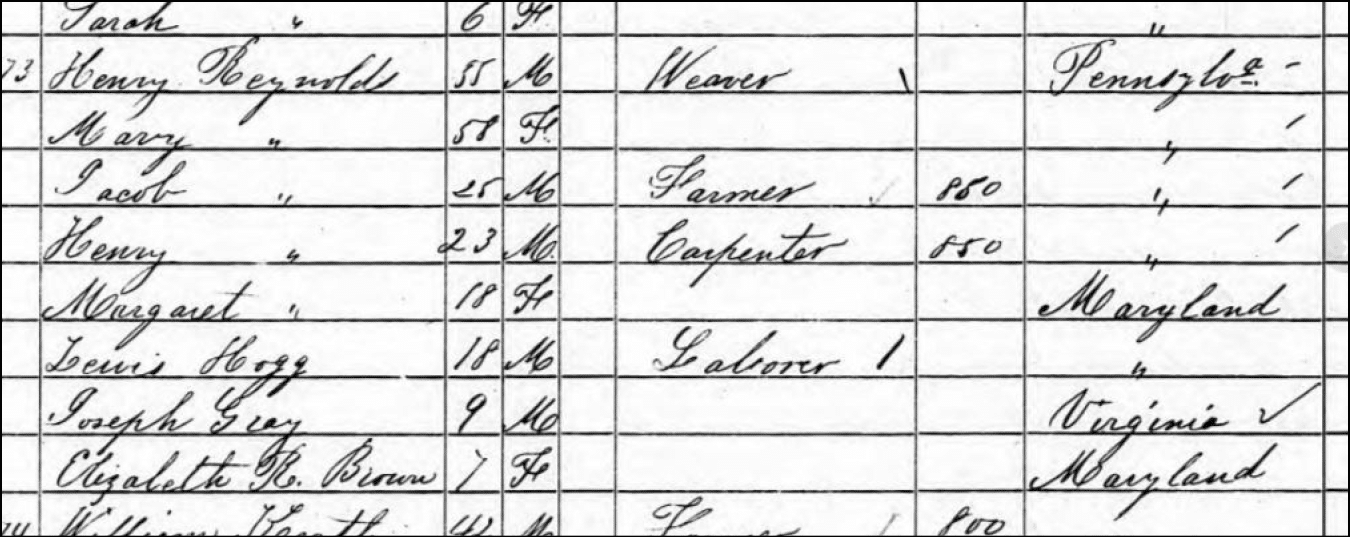 Sarah " 6 F "
73 Henry Reynolds 55 M Weaver Pennsylva.
Mary " 58 F "
Jacob " 25 M Farmer 850 "
Henry " 23 M Carpenter 850 "
Margaret " 18 F Maryland
Lewis Hogg 18 M Laborer "
Joseph Gray 9 M Virginia
Elizabeth R. Brown 7 F Maryland
74 William 42 M Farmer 800